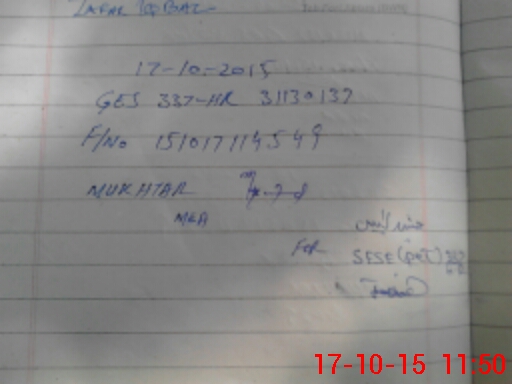 ZAFAR IQBAL
17-10-2015
GES 337-HR 31130137
F/No 151017114549
MUKHTAR
MKA
For
SESE (PET)
17-10-15 11:50